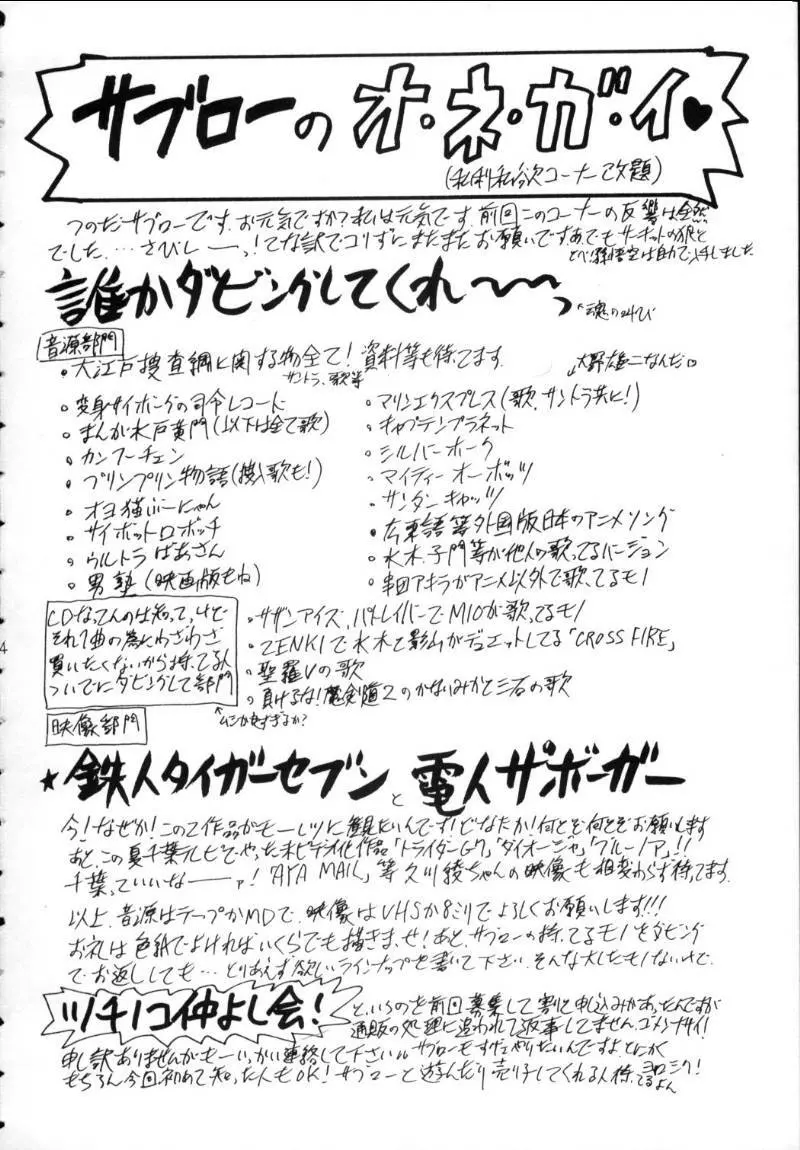 サブローの オ・ネ・ガ・イ♥
(私利私欲コーナー改題)
つのだサブローです。お元気ですか?私は元気です。前回このコーナーの反響は全然
でした…さびしーーっ!てな訳でコリずにまたまたお願いです。あ、でもサーキットの狼と
とべ!孫悟空は自力で入手しました
誰かダビングしてくれ〜〜っ
↑魂の叫び
音源部門
・大江戸捜査網に関する物全て!資料等も待ってます
サントラ、歌等
↓大野雄二なんだ♡
・変身サイボーグの司令レコード
・まんが水戸黄門(以下は全て歌)
・カンフーチェン
・プリンプリン物語(挿入歌も!)
・オヨネコぶーにゃん
・サイボットロボッチ
・ウルトラばあさん
・男塾(映画版もね)
・マリンエクスプレス(歌、サントラ共に!)
・キャプテンプラネット
・シルバーホーク
・マイティーオーボッツ
・サンダーキャッツ
・広東語等外国版日本のアニメソング
・水木、子門等が他人の歌ってるバージョン
・串田アキラがアニメ以外で歌ってるモノ
CDなってんのは知ってっけど
それ1曲の為にわざわざ
買いたくないから持ってる人
ついでにダビングして部門
↑ムシが良すぎるか?
・サザンアイズ、パトレイバーでMIOが歌ってるモノ
・ZENKIで水木と影山がデュエットしてる「CROSS FIRE」
・聖羅Vの歌
・負けるな!魔剣道2のかないみかと三石の歌
映像部門
★鉄人タイガーセブンと電人ザボーガー
今!なぜか!この2作品がモーレツに観たいんです!どなたか!何とぞ何とぞお願いします
あと、この夏千葉テレビでやった未ビデオ化作品「トライダーG7」「ダイオージャ」「ブルーノア」!!
千葉っていいなーーァ!「AYA MAIL」等久川綾ちゃんの映像も相変わらず待ってます
以上、音源はテープかMDで、映像はVHSか8ミリでよろしくお願いします!!!
お礼は色紙でよければいくらでも描きまっせ!あと、サブローの持ってるモノをダビング
でお返ししても…とりあえず欲しいラインナップを書いて下さい。そんな大したモノないけど
ツチノコ仲よし会!
というのを前回募集して割と申込みがあったんですが
通販の処理に追われて返事してません。ゴメンナサイ!
申し訳ありませんがもーいっかい連絡して下さい。サブローもすげェやりたいんですよとにかく
もちろん今回初めて知った人もOK!サブローと遊んだり売り子してくれる人待ってるよん
ヨロシク!
4